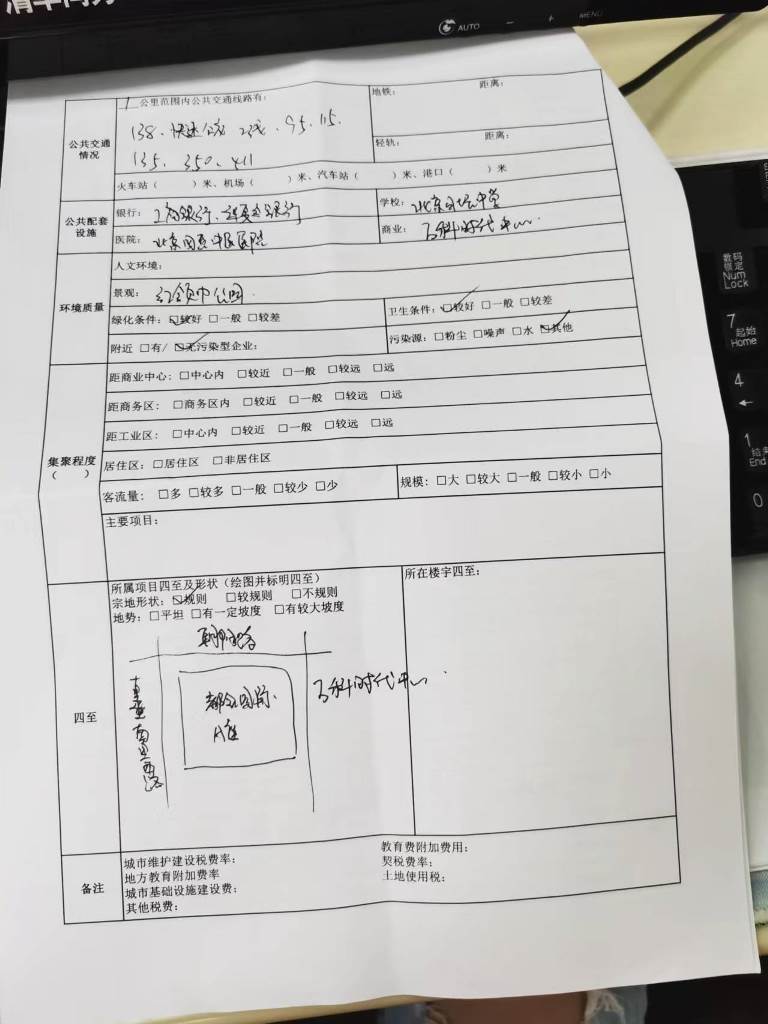 AUTO － + MENU
公共交通情况
1公里范围内公共交通线路有:
138、快速公交2线、95、115、
135、350、411
地铁: 距离:
轻轨: 距离:
火车站（ ）米、机场（ ）米、汽车站（ ）米、港口（ ）米
公共配套设施
银行: 工商银行、华夏银行
学校:
医院:
商业: 万科时代中心
环境质量
人文环境:
景观: 红领巾公园
绿化条件: ☑较好 □一般 □较差
卫生条件: ☑较好 □一般 □较差
附近 □有/ ☑无污染型企业:
污染源: □粉尘 □噪声 □水 ☑其他
集聚程度（ ）
距商业中心: □中心内 □较近 □一般 □较远 □远
距商务区: □商务区内 □较近 □一般 □较远 □远
距工业区: □中心内 □较近 □一般 □较远 □远
居住区: □居住区 □非居住区
客流量: □多 □较多 □一般 □较少 □少
规模: □大 □较大 □一般 □较小 □小
主要项目:
四至
所属项目四至及形状（绘图并标明四至）
宗地形状: ☑规则 □较规则 □不规则
地势: □平坦 □有一定坡度 □有较大坡度
所在楼宇四至:
朝阳路
十里堡南里西路
都会国际
A座
万科时代中心
备注
城市维护建设税费率:
地方教育附加费率
城市基础设施建设费:
其他税费:
教育费附加费用:
契税费率:
土地使用税:
数码锁定
Num
Lock
7 起始
Home
4
←
1 结束
End
0